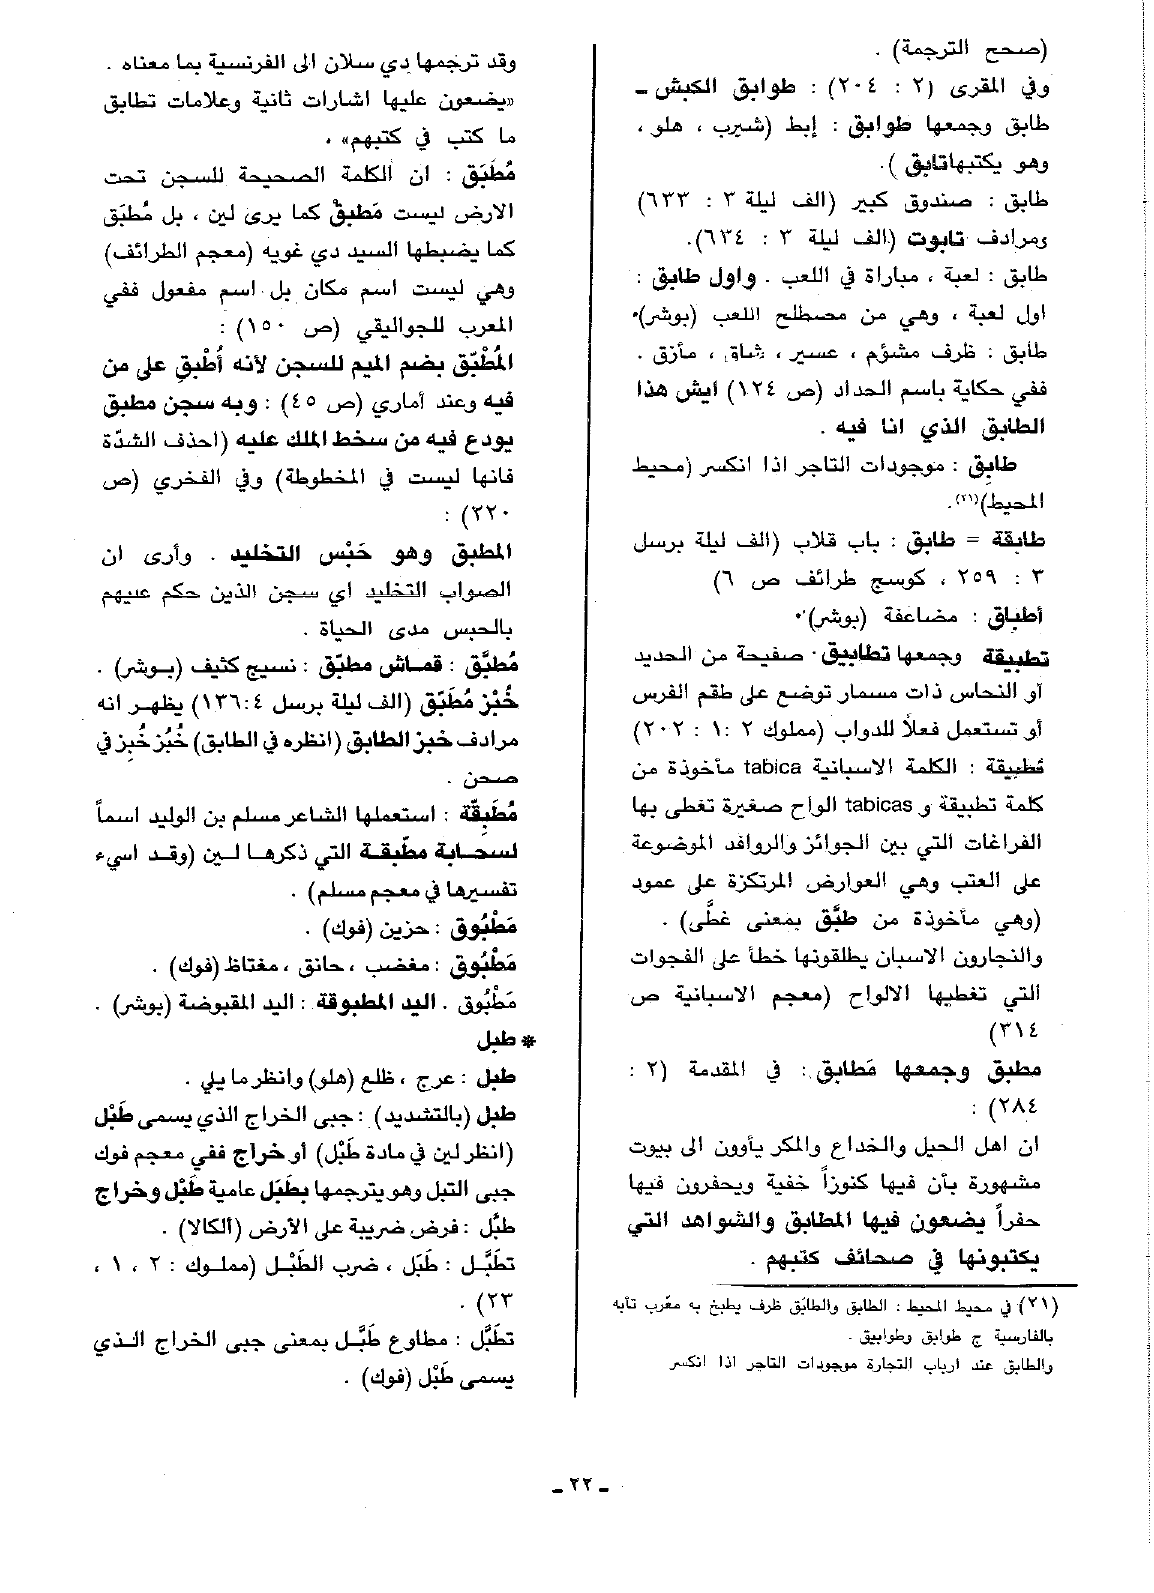 (صحح الترجمة) .
وفي المقرى (٢ : ٢٠٤) : طوابق الكبش ـ
طابق وجمعها طوابق : إبط (شيرب ، هلو ،
وهو يكتبها تابق ).
طابق : صندوق كبير (الف ليلة ٣ : ٦٣٣)
ومرادف تابوت (الف ليلة ٣ : ٦٣٤).
طابق : لعبة ، مباراة في اللعب . واول طابق :
اول لعبة ، وهي من مصطلح اللعب (بوشر).
طابق : ظرف مشؤم ، عسير ، شاق ، مأزق .
ففي حكاية باسم الحداد (ص ١٢٤) ايش هذا
الطابق الذي انا فيه .
طابِق : موجودات التاجر اذا انكسر (محيط
المحيط)(٢١).
طابقة = طابق : باب قلاب (الف ليلة برسل
٣ : ٢٥٩ ، كوسج طرائف ص ٦)
أطباق : مضاعفة (بوشر).
تطبيقة وجمعها تطابيق. صفيحة من الحديد
أو النحاس ذات مسمار توضع على طقم الفرس
أو تستعمل فعلاً للدواب (مملوك ٢ :١ : ٢٠٢)
تطبيقة : الكلمة الاسبانية tabica مأخوذة من
كلمة تطبيقة و tabicas الواح صغيرة تغطى بها
الفراغات التي بين الجوائز والروافد الموضوعة
على العتب وهي العوارض المرتكزة على عمود
(وهي مأخوذة من طبَّق بمعنى غطَّى) .
والنجارون الاسبان يطلقونها خطأ على الفجوات
التي تغطيها الالواح (معجم الاسبانية ص
٣١٤)
مطبق وجمعها مَطابق : في المقدمة (٢ :
٢٨٤) :
ان اهل الحيل والخداع والمكر يأوون الى بيوت
مشهورة بأن فيها كنوزاً خفية ويحفرون فيها
حفراً يضعون فيها المطابق والشواهد التي
يكتبونها في صحائف كتبهم .
(٢١) في محيط المحيط : الطابق والطابَق ظرف يطبخ به معّرب تأبه
بالفارسية ج طوابق وطوابيق .
والطابق عند ارباب التجارة موجودات التاجر اذا انكسر
وقد ترجمها دي سلان الى الفرنسية بما معناه .
«يضعون عليها اشارات ثانية وعلامات تطابق
ما كتب في كتبهم» .
مُطَبَق : ان الكلمة الصحيحة للسجن تحت
الارض ليست مَطبقْ كما يرى لين ، بل مُطبَق
كما يضبطها السيد دي غويه (معجم الطرائف)
وهي ليست اسم مكان بل اسم مفعول ففي
المعرب للجواليقي (ص ١٥٠) :
المُطْبَق بضم الميم للسجن لأنه أُطْبِق على من
فيه وعند أماري (ص ٤٥) : وبه سجن مطبق
يودع فيه من سخط الملك عليه (احذف الشدّة
فانها ليست في المخطوطة) وفي الفخري (ص
٢٢٠) :
المطبق وهو حَبْس التخليد . وأرى ان
الصواب التخليد اي سجن الذين حكم عليهم
بالحبس مدى الحياة .
مُطبَّق : قماش مطبّق : نسيج كثيف (بوشر) .
خُبْز مُطَبَق (الف ليلة برسل ١٣٦:٤) يظهر انه
مرادف خبز الطابق (انظره في الطابق) خُبْز خُبِز في
صحن .
مُطَبِقّة : استعملها الشاعر مسلم بن الوليد اسماً
لسحابة مطبّقة التي ذكرها لين (وقد اسيء
تفسيرها في معجم مسلم) .
مَطْبُوق : حزين (فوك) .
مَطْبُوق : مغضب ، حانق ، مغتاظ (فوك) .
مَطْبُوق . اليد المطبوقة : اليد المقبوضة (بوشر) .
* طبل
طبل : عرج ، ظلع (هلو) وانظر ما يلي .
طبل (بالتشديد) : جبى الخراج الذي يسمى طَبْل
(انظر لين في مادة طَبْل) أو خراج ففي معجم فوك
جبى التبل وهو يترجمها بطَبَل عامية طَبْل وخراج
طبَّل : فرض ضريبة على الأرض (ألكالا) .
تطَبَّل : طَبَل ، ضرب الطَبْل (مملوك : ٢ ، ١ ،
٢٣) .
تطَبَّل : مطاوع طَبَّل بمعنى جبى الخراج الذي
يسمى طَبْل (فوك) .
ـ ٢٢ ـ